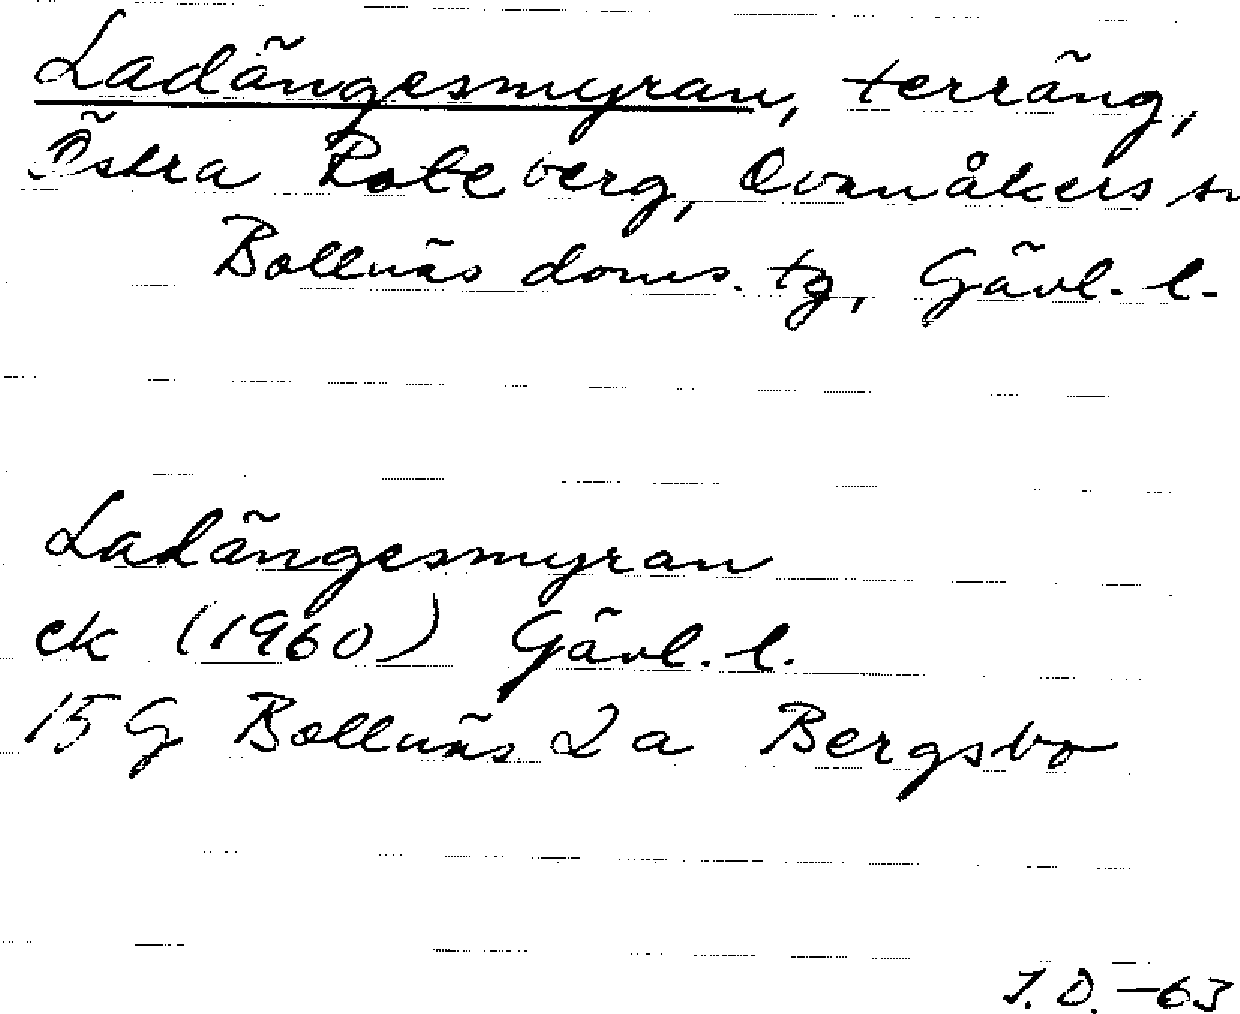 Ladängesmyran, terräng,
Östra Roteberg, Ovanåkers sn
Bollnäs doms. tg, Gävl. l.
Ladängesmyran
ek (1960) Gävl. l.
15 G Bollnäs 2 a Bergsbo
I.D. -63